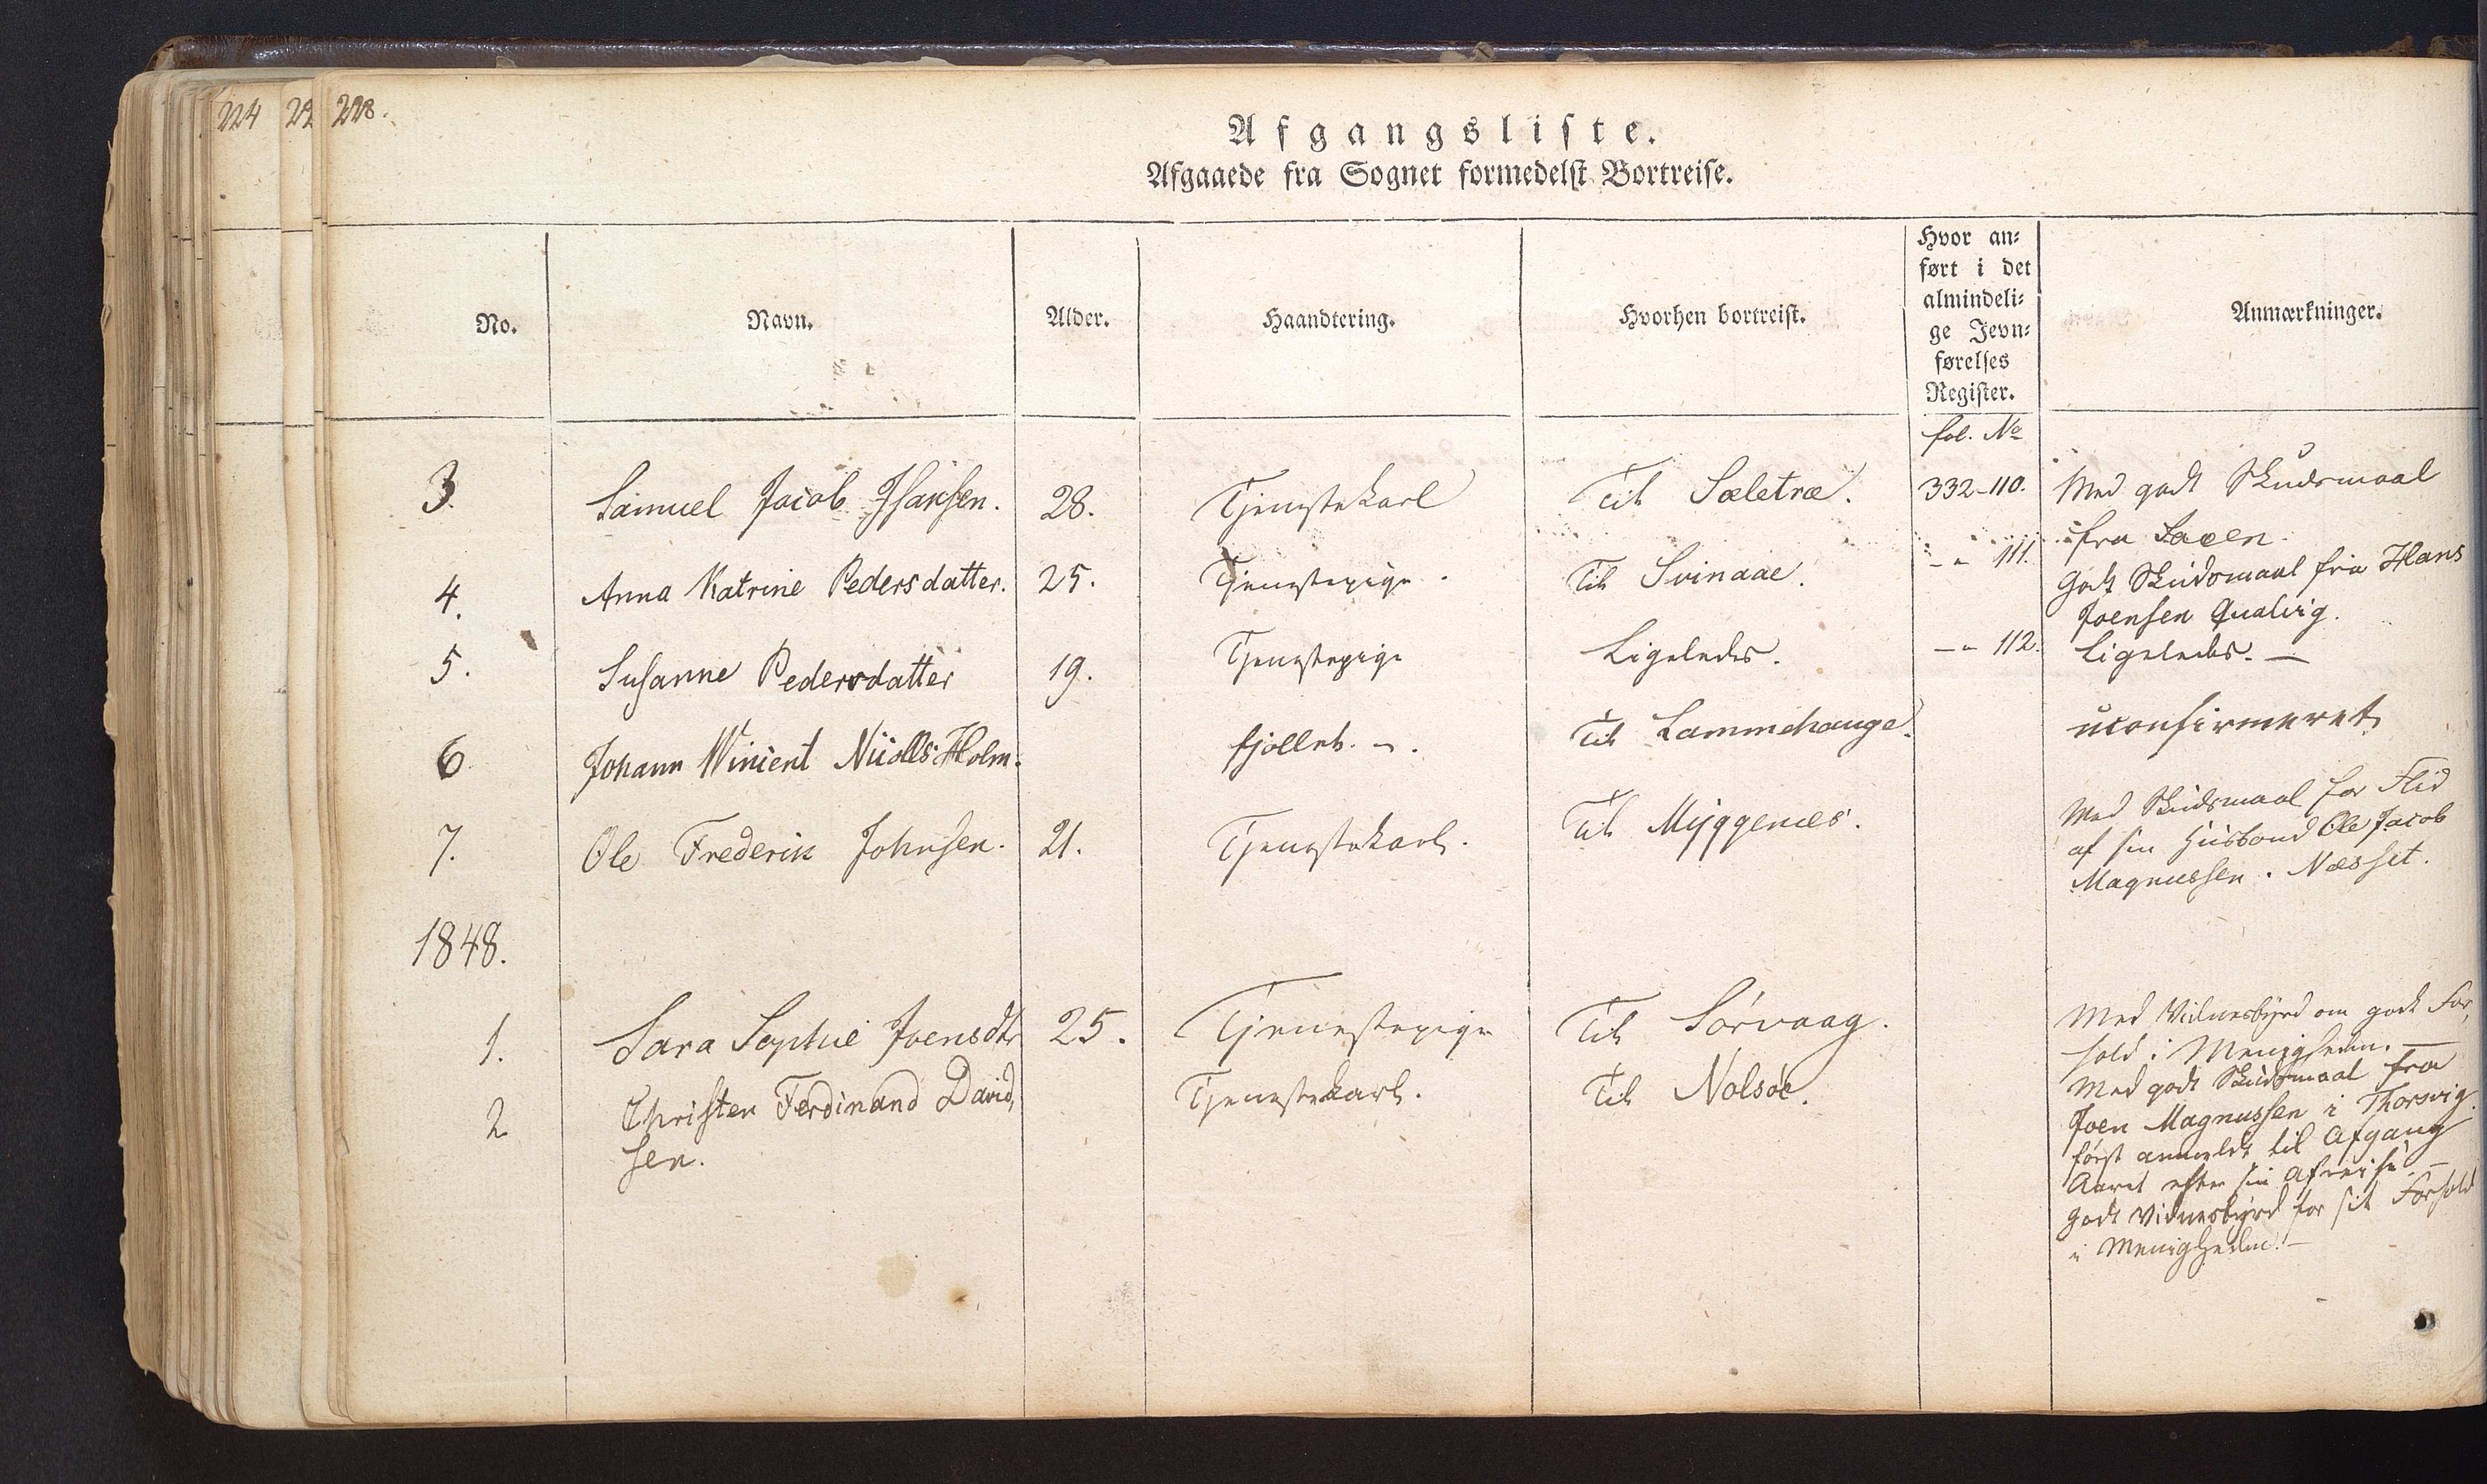 224 22 228.
Afgangsliste.
Afgaaede fra Sognet formedelst Bortreise.
No. Navn. Alder. Haandtering. Hvorhen bortreist. Hvor an-
ført i det
almindeli-
ge Jevn-
førelses
Register. Anmærkninger.
fol. No
3. Samuel Jacob Isaksen. 28. Tjenestekarl Til Sæletræ. 332-110. Med godt Skudsmaal
fra
4. Anna Katrine Pedersdatter. 25. Tjenestepige. Til Svinaae. - " 111. Godt Skudsmaal fra Hans
Joensen Qualvig.
5. Susanne Pedersdatter 19. Tjenestepige Ligeledes. - " 112. Ligeledes. -
6. Johann Winient Holm. fjollet. Til Lammehauge. uconfirmeret
7. Ole Frederik Johnsen. 21. Tjenestekarl. Til Myggenæs. Med Skudsmaal for Flid
af sin Huusbond Ole Jacob
Magnussen. Næsset.
1848.
1. Sara Sophie Joensdtr 25. Tjenestepige Til Sørvaag. Med Vidnesbyrd om godt For-
hold i Menigheden. -
2 Christen Ferdinand David,
sen. Tjenestekarl. Til Nolsøe. Med godt Skudsmaal fra
Joen Magnussen i Thorsvig.
først anmeldt til Afgang
Aaret efter sin Afreise. -
Godt Vidnesbyrd for sit Forhold
i Menigheden. -